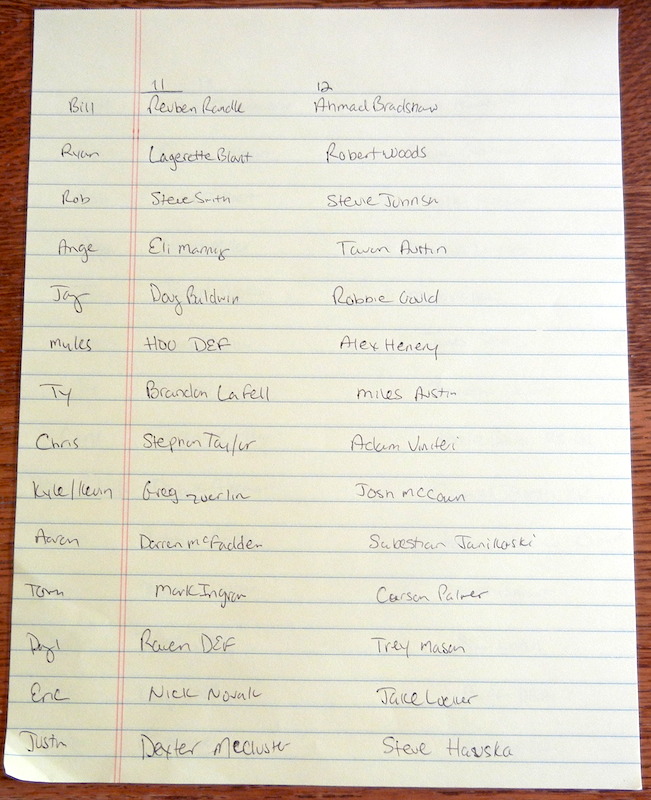 11 12
Bill Reuben Randle Ahmad Bradshaw
Ryan Lagerette Blount Robert Woods
Rob Steve Smith Stevie Johnson
Ange Eli Manning Tavon Austin
Jay Doug Baldwin Robbie Gould
Myles HOU DEF Alex Henery
Ty Brandon Lafell Miles Austin
Chris Stephon Taylor Adam Viniteri
Kyle/Kevin Greg Zuerlin Josh McCown
Aaron Darren McFadden Sabestian Janikoski
Tom Mark Ingram Carson Palmer
Raven DEF Trey Mason
Eric Nick Novak Jake Locker
Justin Dexter McCluster Steve Hauska